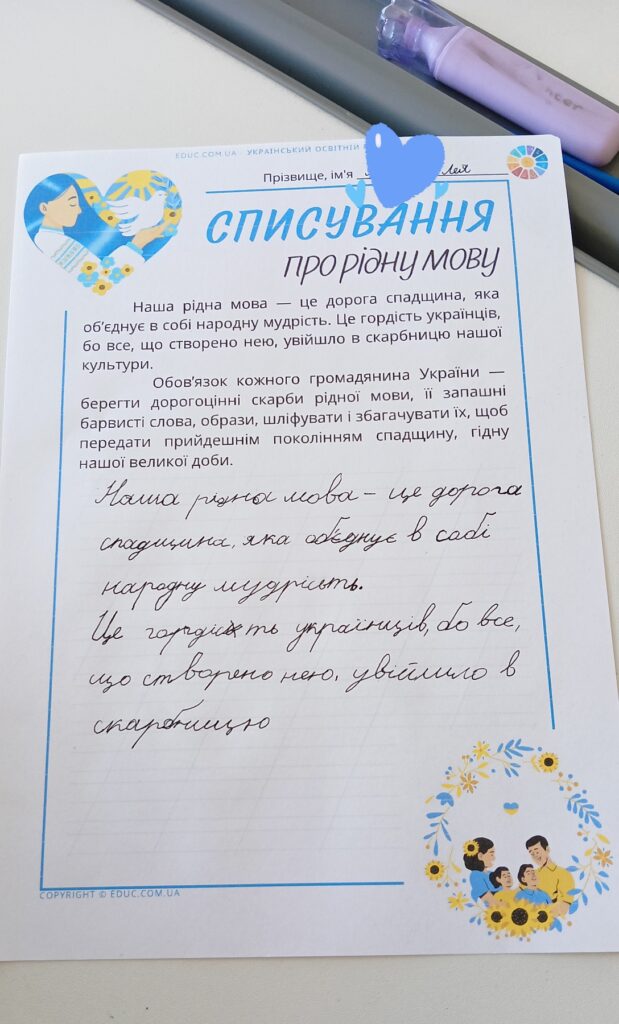 EDUC.COM.UA - УКРАЇНСЬКИЙ ОСВІТНІЙ
Прізвище, ім'я Лея
СПИСУВАННЯ
ПРО РІДНУ МОВУ
Наша рідна мова — це дорога спадщина, яка
об'єднує в собі народну мудрість. Це гордість українців,
бо все, що створено нею, увійшло в скарбницю нашої
культури.
Обов'язок кожного громадянина України —
берегти дорогоцінні скарби рідної мови, її запашні
барвисті слова, образи, шліфувати і збагачувати їх, щоб
передати прийдешнім поколінням спадщину, гідну
нашої великої доби.
Наша рідна мова – це дорога
спадщина, яка об'єднує в собі
народну мудрість.
Це гордість українців, бо все,
що створено нею, увійшло в
скарбницю
COPYRIGHT © EDUC.COM.UA